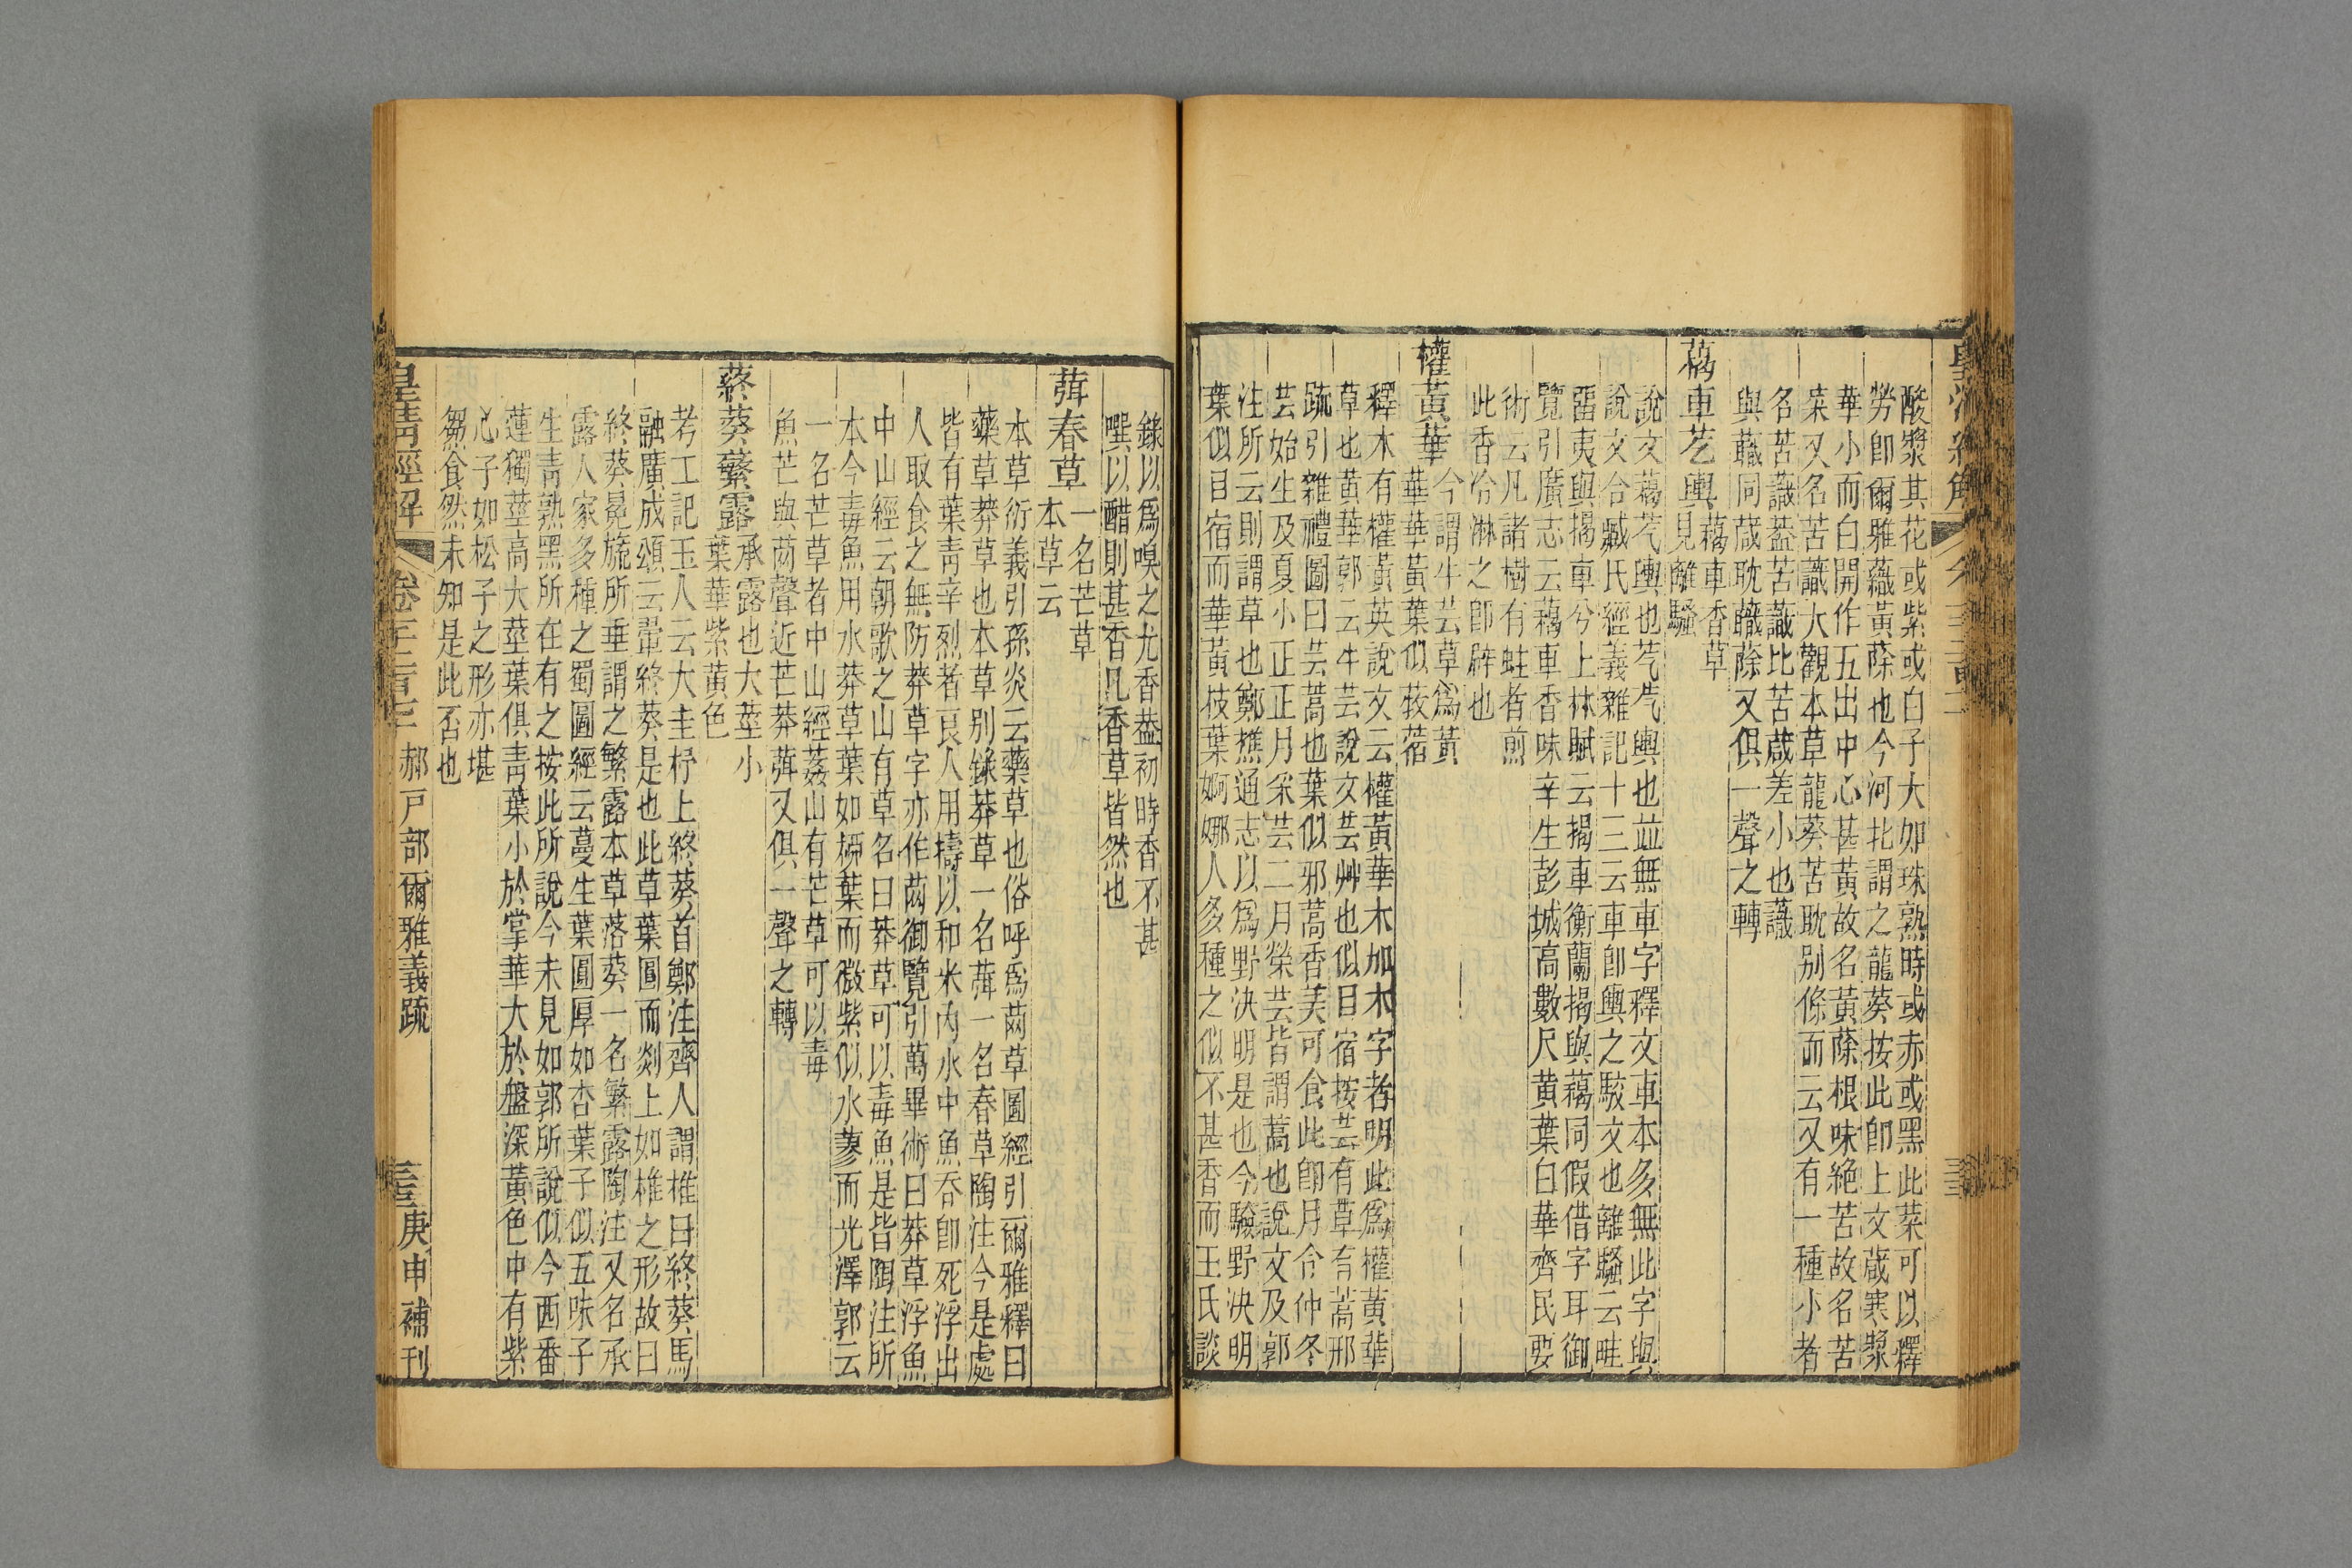 酸漿其花或紫或白子大如珠熟時或赤或黑此菜可以釋
勞卽爾雅蘵黃蒢也今河北謂之龍葵按此卽上文葴寒漿
華小而白開作五出中心甚黃故名黃蒢根味絶苦故名苦
菜又名苦蘵大觀本草龍葵苦耽别條而云又有一種小者
名苦蘵葢苦蘵比苦葴差小也蘵
與蘵同葴耽蘵蒢又俱一聲之轉
藒車芞輿
藒車香草
見離騷
說文藒芞輿也芞芞輿也並無車字釋文車本多無此字與
說文合臧氏經義雜記十三云車卽輿之駮文也離騷云畦
畱夷與揭車兮上林賦云揭車衡蘭揭與藒同假借字耳御
覽引廣志云藒車香味辛生彭城高數尺黃葉白華齊民要
術云凡諸樹有蛀者煎
此香冷淋之卽辟也
權黃華
今謂牛芸草爲黃
華華黃葉似荍蓿
釋木有權黃英說文云權黃華木加木字者明此爲權黃華
草也黃華郭云牛芸說文芸艸也似目宿按芸有草有蒿邢
疏引雜禮圖曰芸蒿也葉似邪蒿香美可食此卽月令仲冬
芸始生及夏小正正月采芸二月榮芸皆謂蒿也說文及郭
注所云則謂草也鄭樵通志以爲野決明是也今驗野決明
葉似目宿而華黃枝葉婀娜人多種之似不甚香而王氏談
錄以爲嗅之尤香葢初時香不甚
噀以醋則甚香凡香草皆然也
葞春草
一名芒草
本草云
本草衍義引孫炎云藥草也俗呼爲莔草圖經引爾雅釋曰
藥草莽草也本草别錄莽草一名葞一名春草陶注今是處
皆有葉靑辛烈者良人用擣以和米內水中魚吞卽死浮出
人取食之無防莽草字亦作莔御覽引萬畢術曰莽草浮魚
中山經云朝歌之山有草名曰莽草可以毒魚是皆陶注所
本今毒魚用水莽草葉如柳葉而微紫似水蓼而光澤郭云
一名芒草者中山經葌山有芒草可以毒
魚芒與莔聲近芒莽葞又俱一聲之轉
蔠葵蘩露
承露也大莖小
葉華紫黃色
考工記玉人云大圭杼上終葵首鄭注齊人謂椎曰終葵馬
融廣成頌云翬終葵是也此草葉圓而剡上如椎之形故曰
終葵冕旒所垂謂之繁露本草落葵一名繁露陶注又名承
露人家多種之蜀圖經云蔓生葉圓厚如杏葉子似五味子
生靑熟黑所在有之按此所說今未見如郭所說似今西番
蓮獨莖高大莖葉俱靑葉小於掌華大於盤深黃色中有紫
心子如松子之形亦堪
芻食然未知是此否也
皇淸經解 郝戸部爾雅義疏 庚申補刊